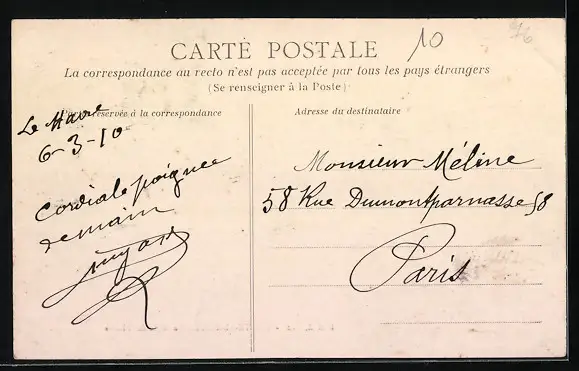 10
CARTE POSTALE
La correspondance au recto n'est pas acceptée par tous les pays étrangers
(Se renseigner à la Poste)
réservée à la correspondance
Adresse du destinataire
Le Havre
6-3-10
Cordiale poignee
de main
Monsieur Méline
58 Rue Dumontparnasse 58
Paris